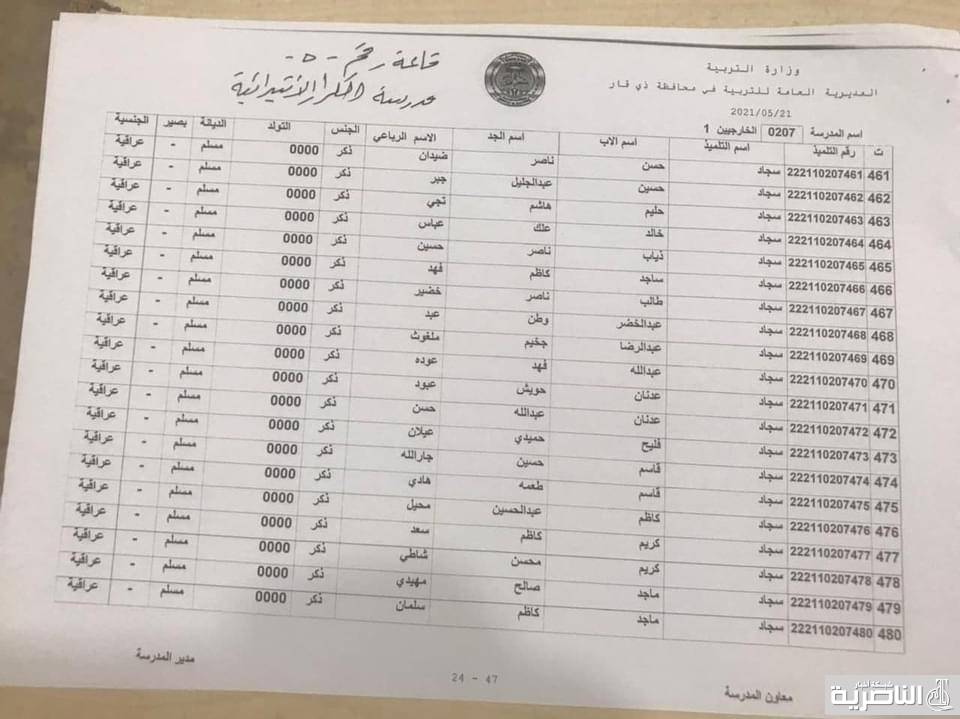 وزارة التربية
المديرية العامة للتربية في محافظة ذي قار
2021/05/21
قاعة رقم -٥-
مدرسة الابتدائية
اسم المدرسة 0207 الخارجيين 1
ت رقم التلميذ اسم التلميذ اسم الاب اسم الجد الاسم الرباعي الجنس التولد الديانة بصير الجنسية
461 222110207461 سجاد حسن ناصر ضيدان ذكر 0000 مسلم - عراقية
462 222110207462 سجاد حسين عبدالجليل جبر ذكر 0000 مسلم - عراقية
463 222110207463 سجاد حليم هاشم تجي ذكر 0000 مسلم - عراقية
464 222110207464 سجاد خالد علك عباس ذكر 0000 مسلم - عراقية
465 222110207465 سجاد ذياب ناصر حسين ذكر 0000 مسلم - عراقية
466 222110207466 سجاد ساجد كاظم فهد ذكر 0000 مسلم - عراقية
467 222110207467 سجاد طالب ناصر خضير ذكر 0000 مسلم - عراقية
468 222110207468 سجاد عبدالخضر وطن عبد ذكر 0000 مسلم - عراقية
469 222110207469 سجاد عبدالرضا جخيم ملغوث ذكر 0000 مسلم - عراقية
470 222110207470 سجاد عبدالله فهد عوده ذكر 0000 مسلم - عراقية
471 222110207471 سجاد عدنان حويش عبود ذكر 0000 مسلم - عراقية
472 222110207472 سجاد عدنان عبدالله حسن ذكر 0000 مسلم - عراقية
473 222110207473 سجاد فليح حميدي عيلان ذكر 0000 مسلم - عراقية
474 222110207474 سجاد قاسم حسين جارالله ذكر 0000 مسلم - عراقية
475 222110207475 سجاد قاسم طعمه هادي ذكر 0000 مسلم - عراقية
476 222110207476 سجاد كاظم عبدالحسين محيل ذكر 0000 مسلم - عراقية
477 222110207477 سجاد كريم كاظم سعد ذكر 0000 مسلم - عراقية
478 222110207478 سجاد كريم محسن شاطي ذكر 0000 مسلم - عراقية
479 222110207479 سجاد ماجد صالح مهيدي ذكر 0000 مسلم - عراقية
480 222110207480 سجاد ماجد كاظم سلمان ذكر 0000 مسلم - عراقية
معاون المدرسة
24 - 47
مدير المدرسة
شبكة أخبار
الناصرية